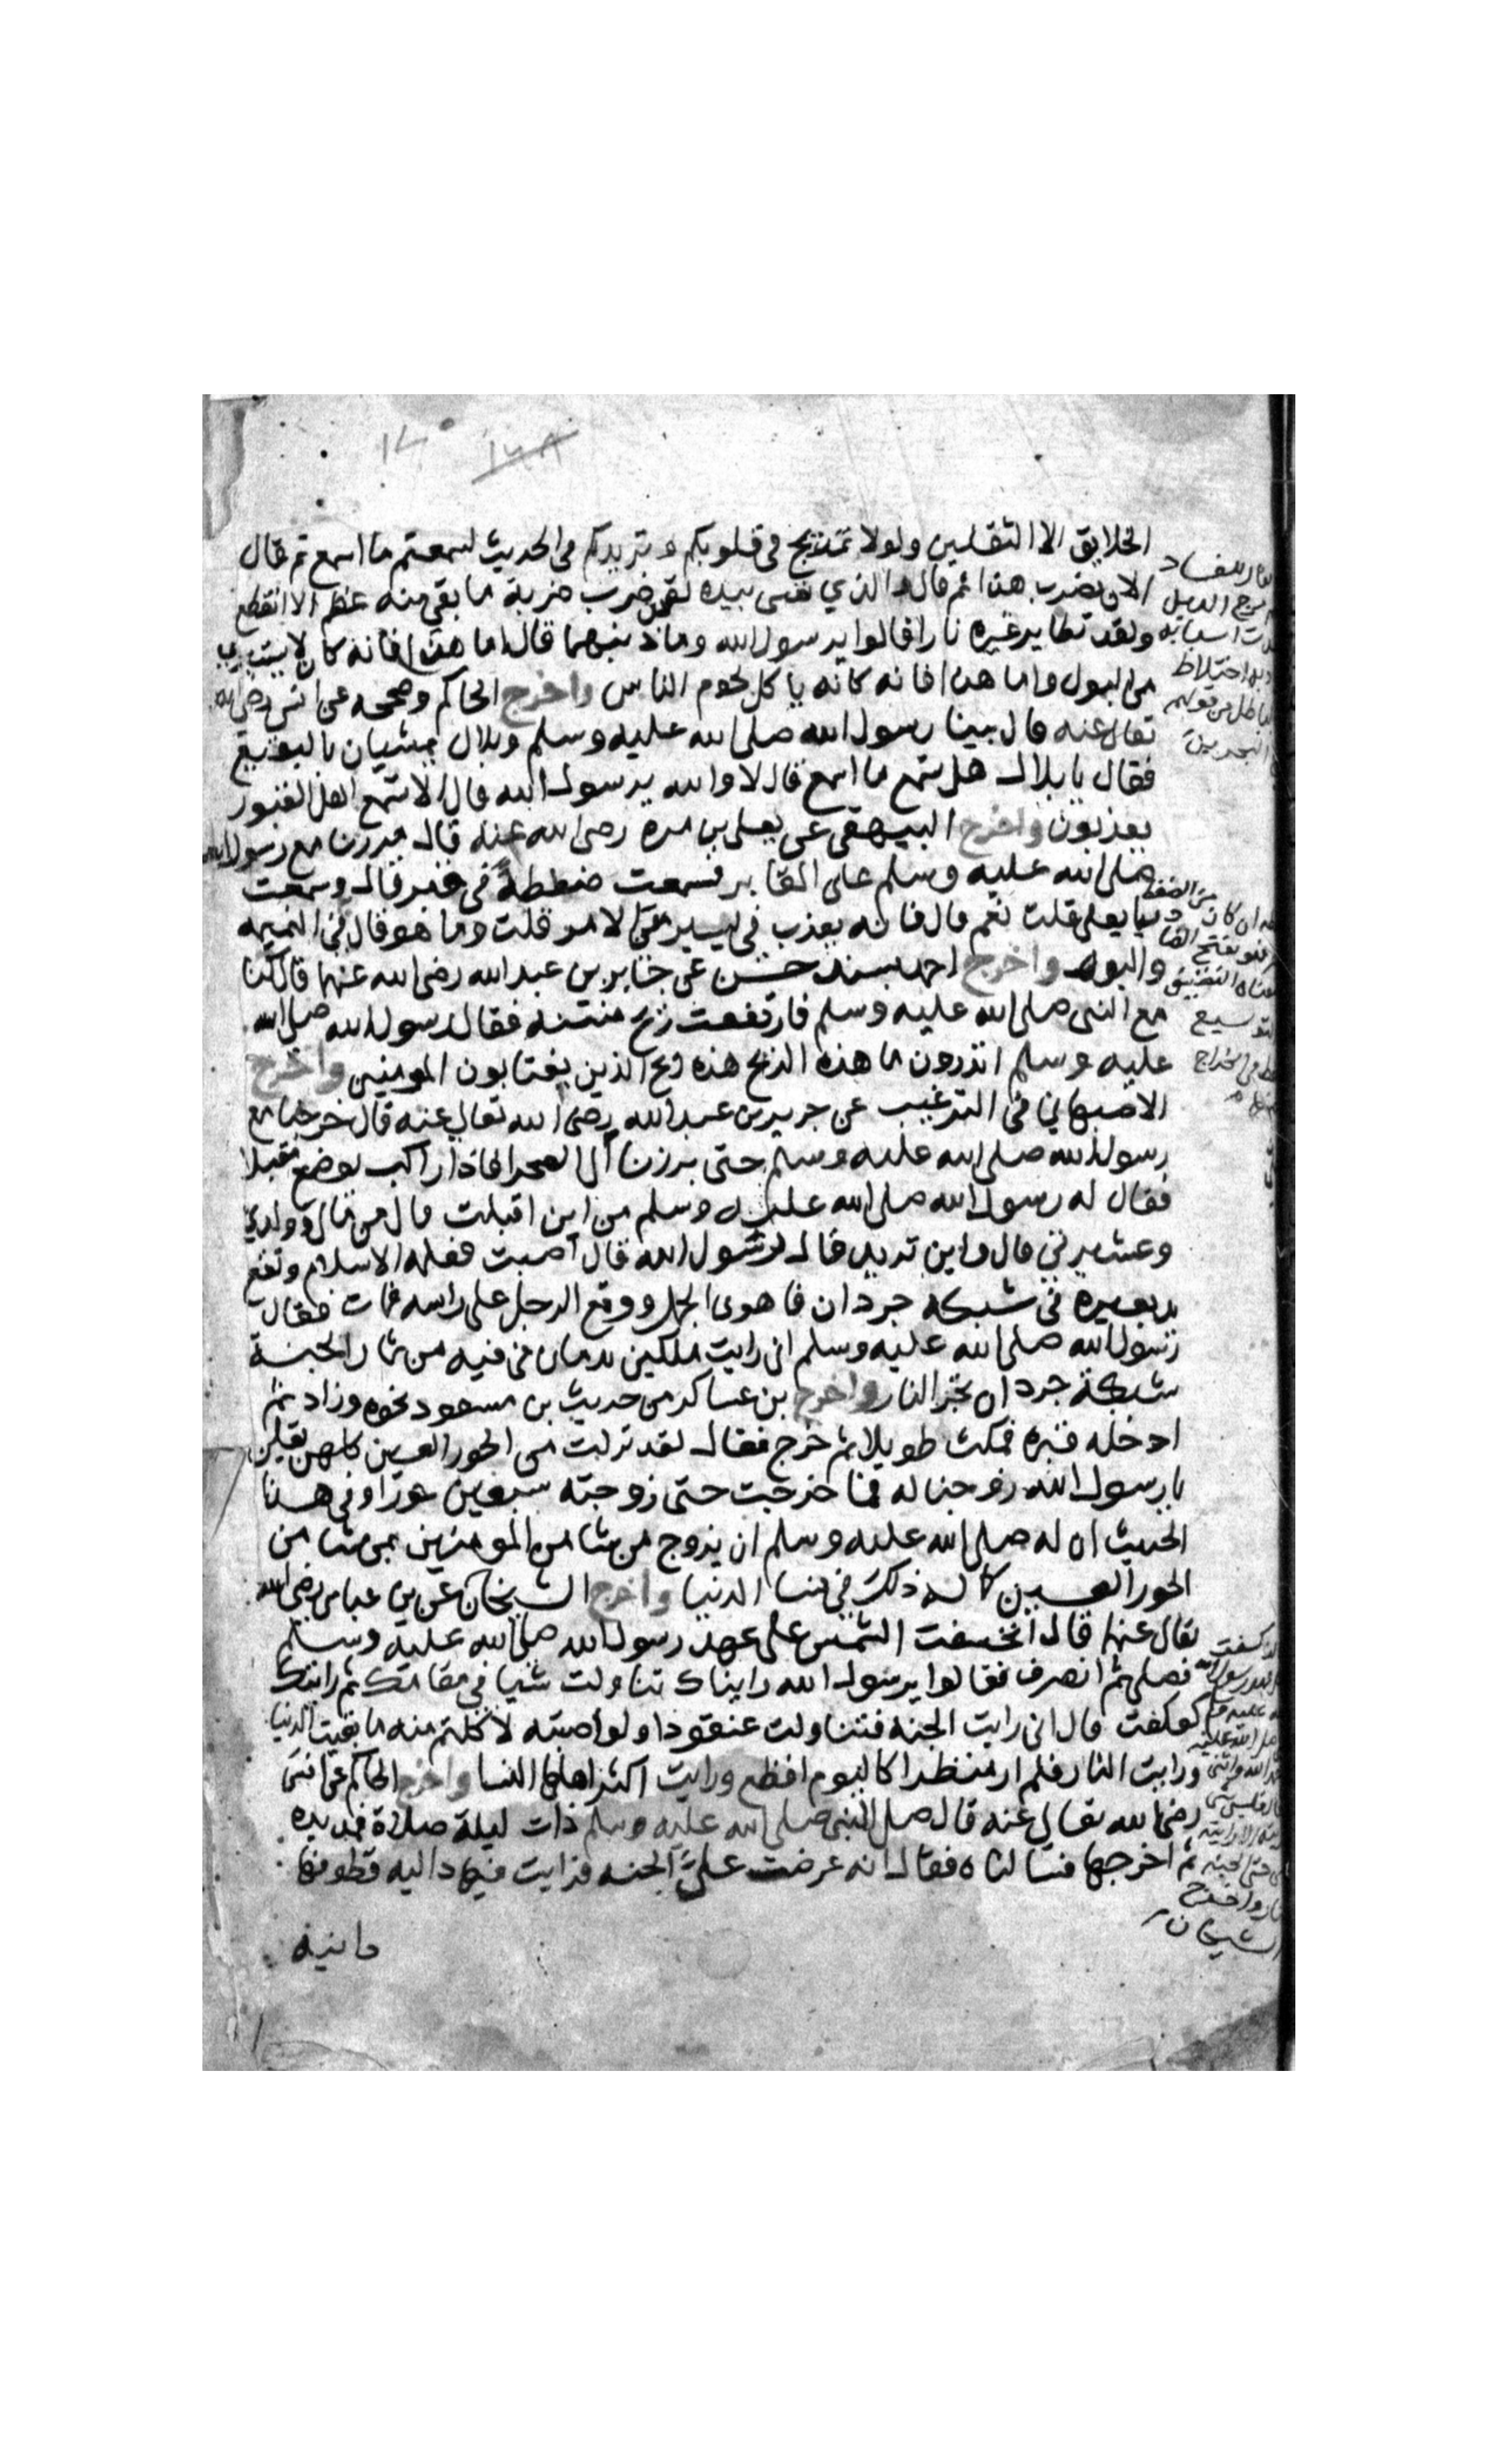 الخلايق الا الثقلين ولولا تمتزيج في قلوبكم وتزيدكم في الحديث لسمعتم ما اسمع ثم قال
الان يضرب هذا ثم قال والذي نفسي بيده لقد ضرب ضربة ما بقي منه عظم الا انقطع
ولقد تطاير قبره نارا قالوا يرسول الله وما ذنبهما قال اما هذا فانه كان لا يستبري
من البول واما هذا فانه كانه ياكل لحوم الناس واخرج الحاكم وصححه عن انس رضي الله
تعالى عنه قال بينا رسول الله صلى الله عليه وسلم وبلال يمشيان بالبقيع
فقال يا بلال هل تسمع ما اسمع قال لا والله يرسول الله قال الا تسمع اهل القبور
يعذبون واخرج البيهقي عن يعلى بن مره رضي الله عنه قال مررنا مع رسول الله
صلى الله عليه وسلم على المقابر فسمعت ضغطة في قبر قال وسمعت
يا يعلى قلت نعم قال فانه يعذب في يسير من الامر قلت وما هو قال في النميمه
والبول واخرج احمد بسند حسن عن جابر بن عبد الله رضي الله عنهما قال كنا
مع النبي صلى الله عليه وسلم فارتفعت ريح منتنه فقال رسول الله صلى الله
عليه وسلم اتدرون ما هذه الريح هذه ريح الذين يغتابون المومنين واخرج
الاصبهاني في الترغيب عن جرير بن عبد الله رضي الله تعالى عنه قال خرجنا مع
رسول الله صلى الله عليه وسلم حتى برزنا الى الصحرا فاذا راكب يوضع مقبلا
فقال له رسول الله صلى الله عليه وسلم من اين اقبلت قال من مالي وولدي
وعشيرتي قال واين تريد قال لرسول الله قال اصبت فعلمه الاسلام وتقع
يد بعيره في شبكة جردان فاهوى الجمل ووقع الرجل على راسه فمات فقال
رسول الله صلى الله عليه وسلم اني رايت ملكين يدسان في فيه من ثمار الجنة
شبكة جردان حجر النار واخرج بن عساكر من حديث بن مسعود نحوه وزاد ثم
ادخله قبره فمكث طويلا ثم خرج فقال لقد نزلت من الحور العين كلهن يقلن
يا رسول الله زوجنا له فما خرجت حتى زوجته سبعين حورا وفي هذا
الحديث ان له صلى الله عليه وسلم ان يزوج من شا من المومنين بمن شا من
الحور العين كما له ذلك في نسا الدنيا واخرج الشيخان عن بن عباس رضي الله
تعالى عنهما قال انخسفت الشمس على عهد رسول الله صلى الله عليه وسلم
فصلى ثم انصرف فقالوا يرسول الله رايناك تناولت شيا في مقامك ثم رايناك
كعكعت قال اني رايت الجنه فتناولت عنقودا ولو اصبته لاكلتم منه ما بقيت الدنيا
ورايت النار فلم ار منظرا كاليوم افظع ورايت اكثر اهلها النسا واخرج الحاكم عن انس
رضي الله تعالى عنه قال صلى النبي صلى الله عليه وسلم ذات ليلة صلاة فمد يده
ثم اخرجها فسالناه فقال انه عرضت علي الجنه فرايت فيها داليه قطوفها
دانيه
اختلاط
التوسيع
الشيخان